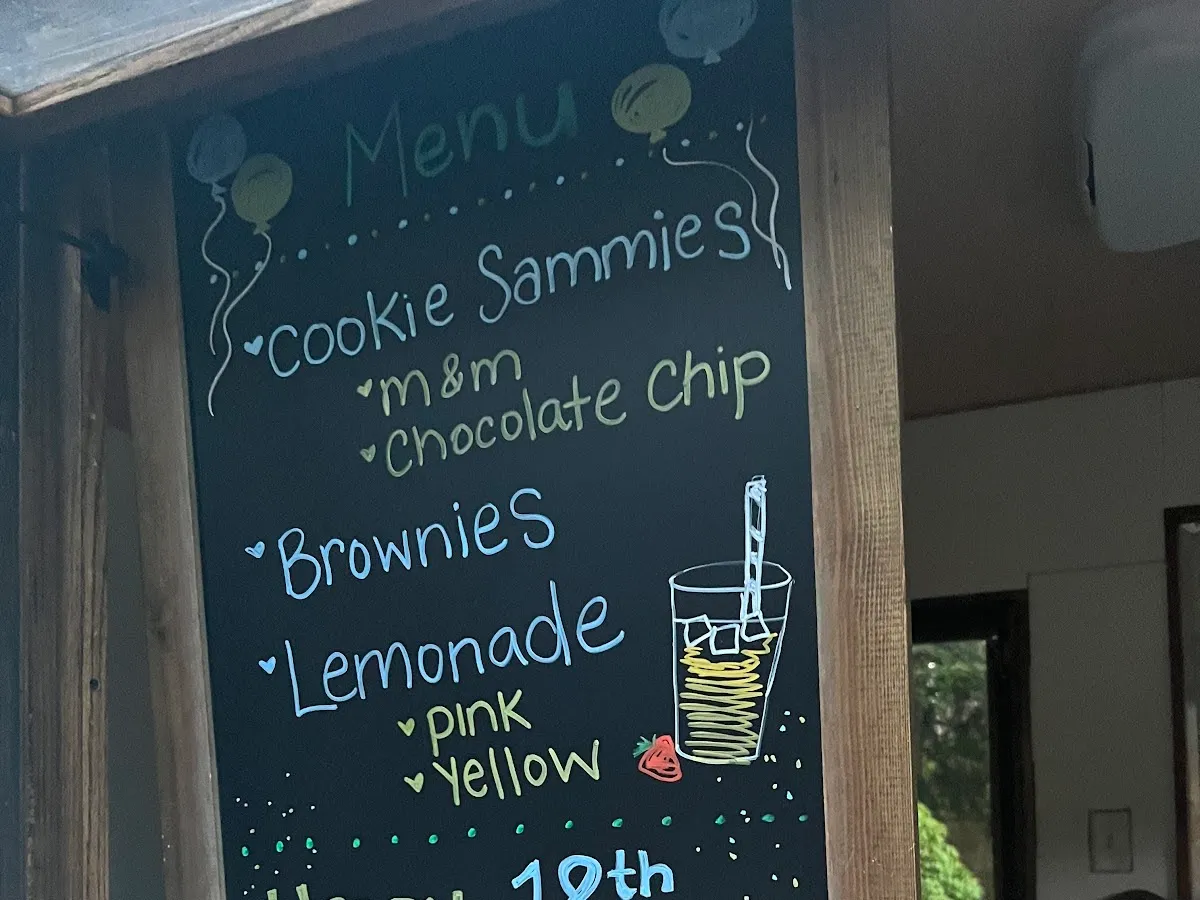 Menu
Cookie Sammies
m&m
Chocolate Chip
Brownies
Lemonade
pink
Yellow
19th